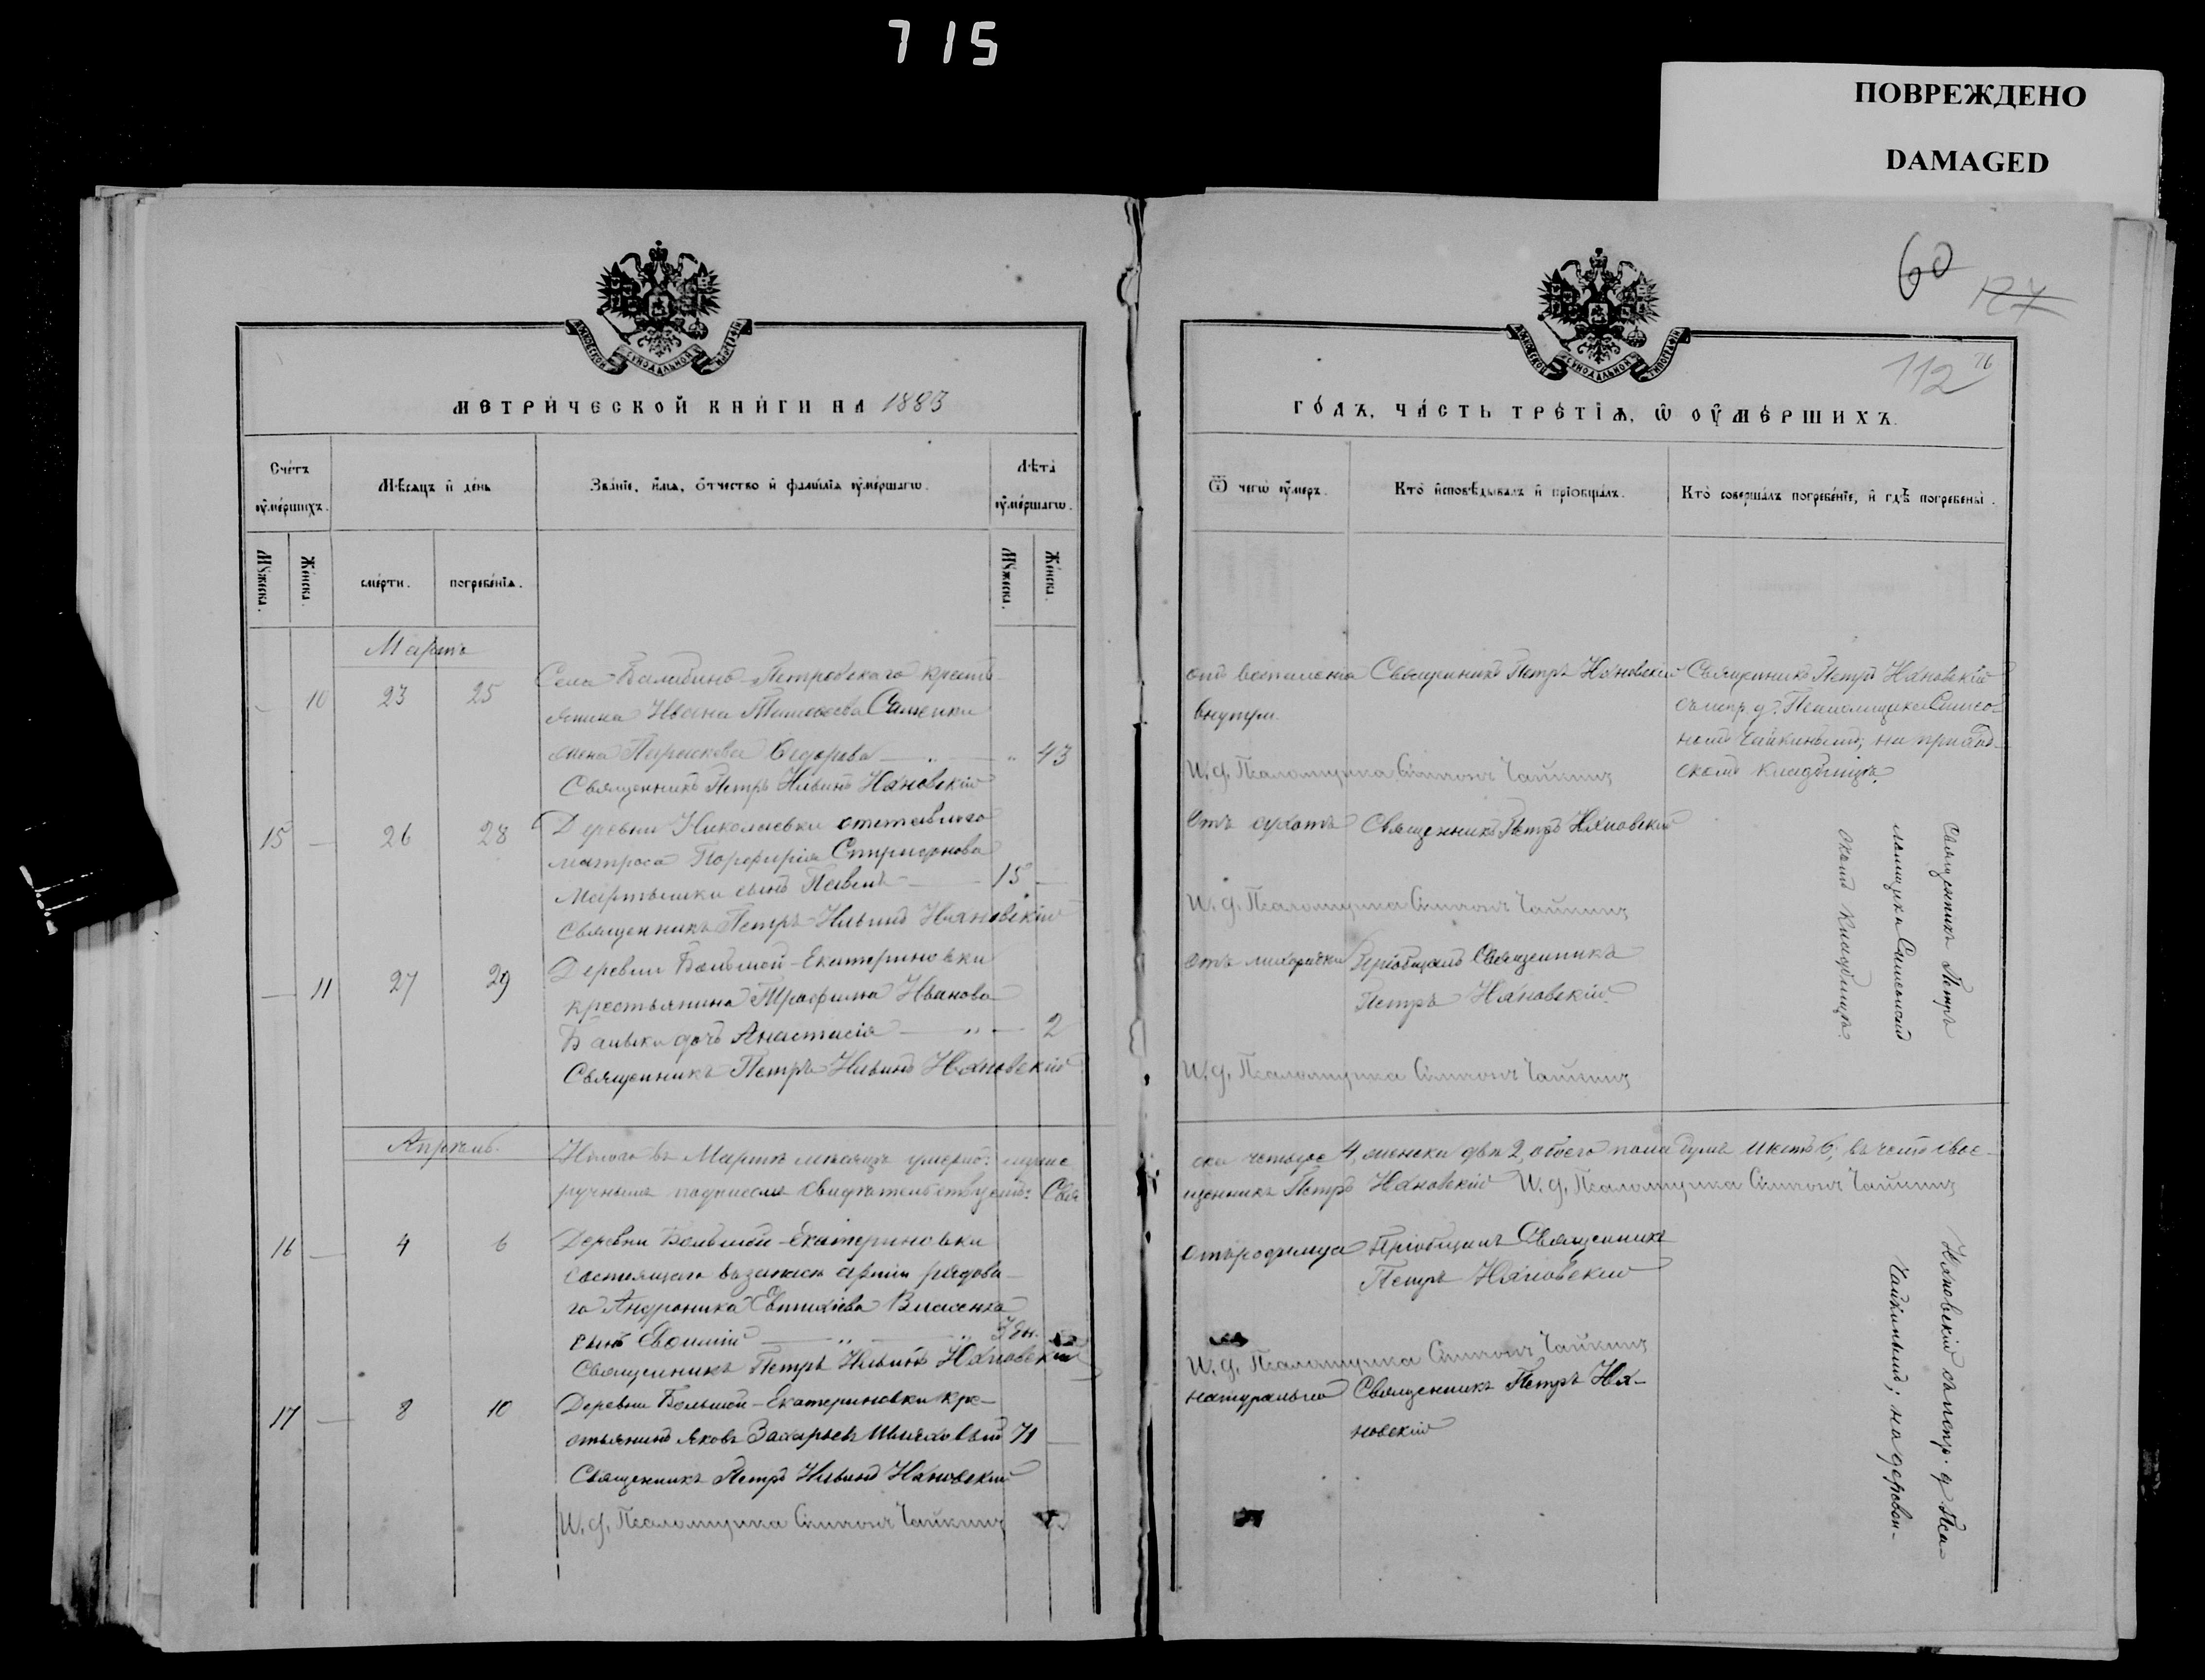 715
ПОВРЕЖДЕНО
DAMAGED
60
127
112
76
МЕТРИЧЕСКОЙ КНИГИ НА 1883
Счетъ умершихъ.
Мѣсяцъ и день
Званіе, имя, отчество и фамилія умершаго.
Лѣта умершаго.
Мужеска.
Женска.
смерти.
погребенія.
Мужеска.
Женска.
Мартъ
10 23 25 Села Балабино-Петровскаго кресть-
янина Ивана Саленки
жена Параскева Федорова 43
Священникъ Петръ Ильинъ Нановскій
15 26 28 Деревни Николаевки отставнаго
матроса Порфирія Спиридонова
Мартышки сынъ Павелъ 15
Священникъ Петръ Ильинъ Нановскій
11 27 29 Деревни Большой-Екатериновки
крестьянина Трофима Иванова
дочь Анастасія 2
Священникъ Петръ Ильинъ Нановскій
Апрѣль
Итого въ Мартѣ мѣсяцѣ умерло: мужес-
ручнымъ подписомъ свидѣтельствуемъ: Свя-
16 4 6 Деревни Большой-Екатериновки
состоящаго въ запасѣ арміи рядова-
го Андроника Евтихіева Власенка
сынъ Евфимій 3 дн.
Священникъ Петръ Ильинъ Нановскій
17 8 10 Деревни Большой-Екатериновки кре-
стьянинъ Яковъ Захарьевъ 71
Священникъ Петръ Ильинъ Нановскій
И. д. Псаломщика Симеонъ Чайкинъ
ГОДЪ, ЧАСТЬ ТРЕТІЯ, Ѿ ОУМЕРШИХЪ.
Ѿ чего умеръ.
Кто исповѣдывалъ и пріобщалъ.
Кто совершалъ погребеніе, и гдѣ погребены.
отъ воспаленія Священникъ Петръ Нановскій Священникъ Петръ Нановскій
внутри съ испр. д. Псаломщика Симео-
номъ Чайкинымъ; на приход-
И. д. Псаломщика Симеонъ Чайкинъ скомъ кладбищѣ.
Отъ сухотъ Священникъ Петръ Нановскій
И. д. Псаломщика Симеонъ Чайкинъ
Отъ лихорадки Пріобщалъ Священникъ
Петръ Нановскій
И. д. Псаломщика Симеонъ Чайкинъ
ска четыре 4, женска двѣ 2, обоего пола душъ шесть 6; въ чемъ свое-
щенникъ Петръ Нановскій И. д. Псаломщика Симеонъ Чайкинъ
Отъ родимца Пріобщалъ Священникъ
Петръ Нановскій
И. д. Псаломщика Симеонъ Чайкинъ
натурально Священникъ Петръ На-
новскій
Священникъ Петръ Нановскій съ испр. д. Пса-
ломщика Симеономъ Чайкинымъ; на деревен-
скомъ кладбищѣ.